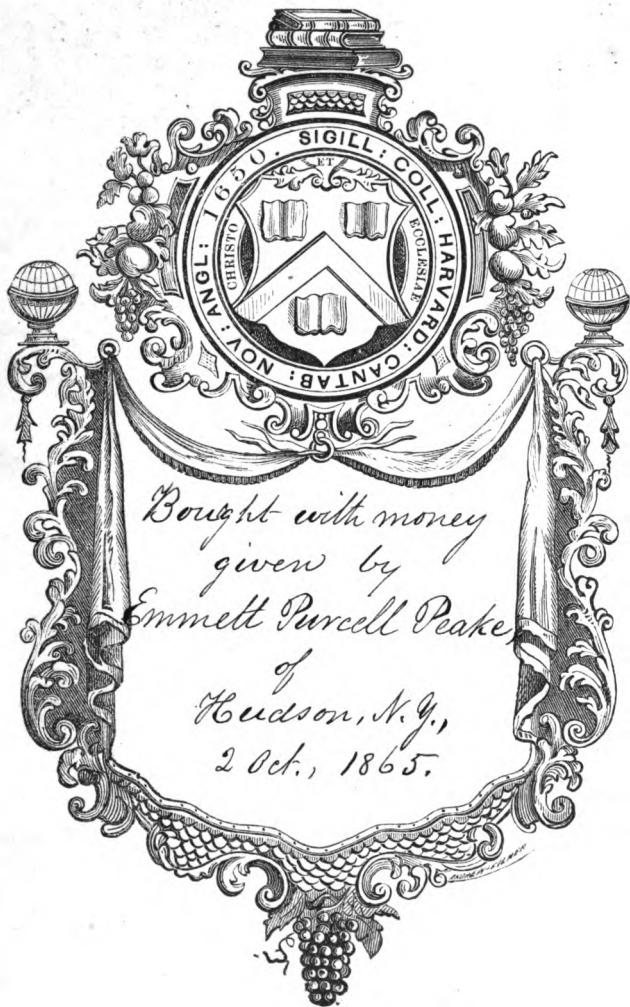 SIGILL: COLL: HARVARD: CANTAB: NOV: ANGL: 1650.
CHRISTO ET ECCLESIAE
Bought with money
given by
Emmett Purcell Peake,
of
Hudson, N.Y.,
2 Oct., 1865.